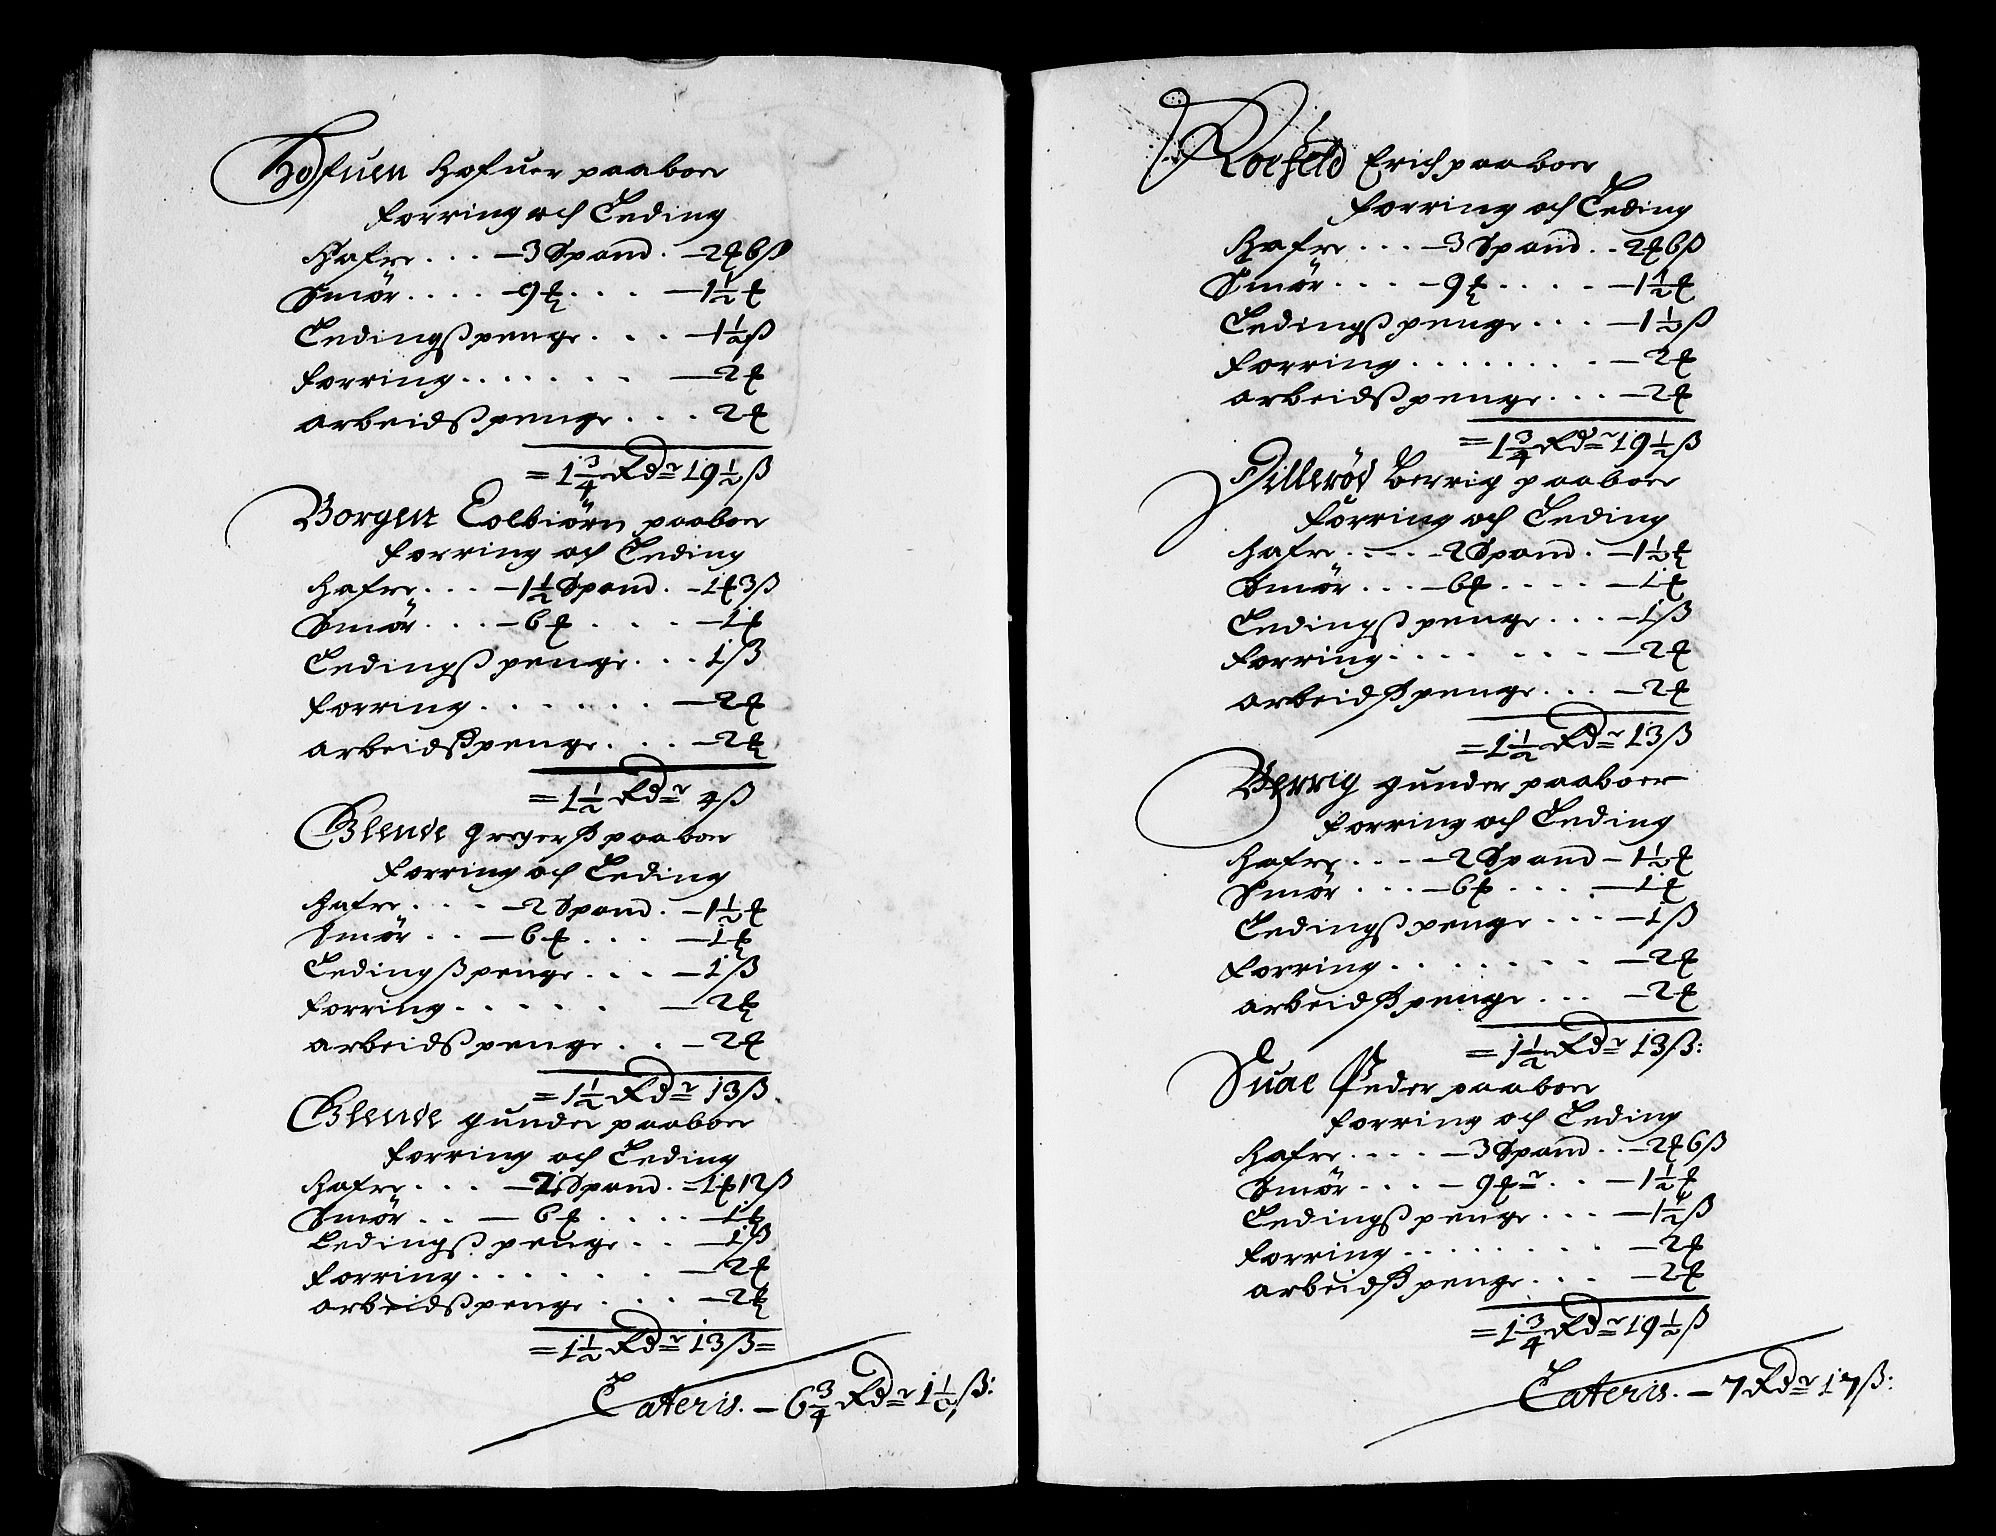 Hofuen Hafuer paaboer
Forring och Leding
Hafre . . . — 3 Spand . — 2 ₰ 6 ß
Smör . . . . — 9 ₰ . . . — 1½ ₰
Ledingßpenge . . . — 1½ ß
Forring . . . . . . . — 2 ₰
arbeidßpenge . . . 2 ₰
= 1¾ Rdr 19½ ß
Borgen Colbiörn paaboer
Forring och Leding
Hafre . . . — 1½ Spand . — 1 ₰ 3 ß
Smör . . . — 6 ₰ . . . . — 1 ₰
Ledingß penge . . . 1 ß
Forring . . . . . . — 2 ₰
arbeidßpenge . . . — 2 ₰
= 1½ Rdr 4 ß
Blende gregerß paaboer
Forring och Leding
Hafre . . . — 2 Spand . — 1½ ₰
Smör . . — 6 ₰ . . . — 1 ₰
Ledingßpenge . . . — 1 ß
Forring . . . . . — 2 ₰
arbeidßpenge . . — 2 ₰
= 1½ Rdr 13 ß
Blende gunder paaboer
Forring och Leding
Hafre . . . — 2 Spand . = 1 ₰ 12 ß
Smör . . — 6 ₰ . . . . — 1 ₰
Ledingß penge . . — 1 ß
Forring . . . . . . — 2 ₰
arbeidßpenge . . . — 2 ₰
= 1½ Rdr 13 ß =
Lateris. — 6¾ Rdr 1½ ß:
Roefeld Erich paaboer
Forring och Leding
Hafre . . . — 3 Spand . . 2 ₰ 6 ß
Smör . . . . — 9 ₰ . . . . — 1½ ₰
Ledingßpenge . . . — 1½ ß
Forring . . . . . . . — 2 ₰
arbeidßpenge . . . — 2 ₰
= 1¾ Rdr 19½ ß
Tilleröd berrig paaboer
Forring och Leding
Hafre . . . . — 2 Spand . — 1½ ₰
Smör . . . — 6 ₰ . . . . — 1 ₰
Ledingß penge . . . — 1 ß
Forring . . . . . . . — 2 ₰
arbeidßpenge . . . — 2 ₰
= 1½ Rdr 13 ß
Berrig gunder paaboer
Forring och Leding
Hafre . . . . — 2 Spand — 1½ ₰
Smör . . . — 6 ₰ . . . . — 1 ₰
Ledingßpenge . . . — 1 ß
Forring . . . . . . . — 2 ₰
arbeidßpenge . . . — 2 ₰
= 1½ Rdr 13 ß:
Suae Peder paaboer
Forring och Leding
Hafre . . . . — 3 Spand . . — 2 ₰ 6 ß
Smör . . . — 9 ₰r . . — 1½ ₰
Ledingßpenge . . . — 1½ ß
Forring . . . . . . . . — 2 ₰
arbeidßpenge . . . — 2 ₰
= 1¾ Rdr 19½ ß
Lateris. — 7 Rdr 17 ß: